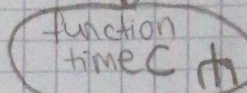 function
time C